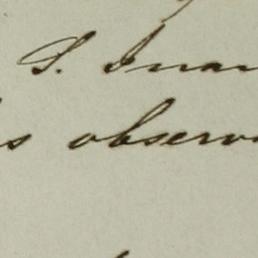 S. Inan
s observ